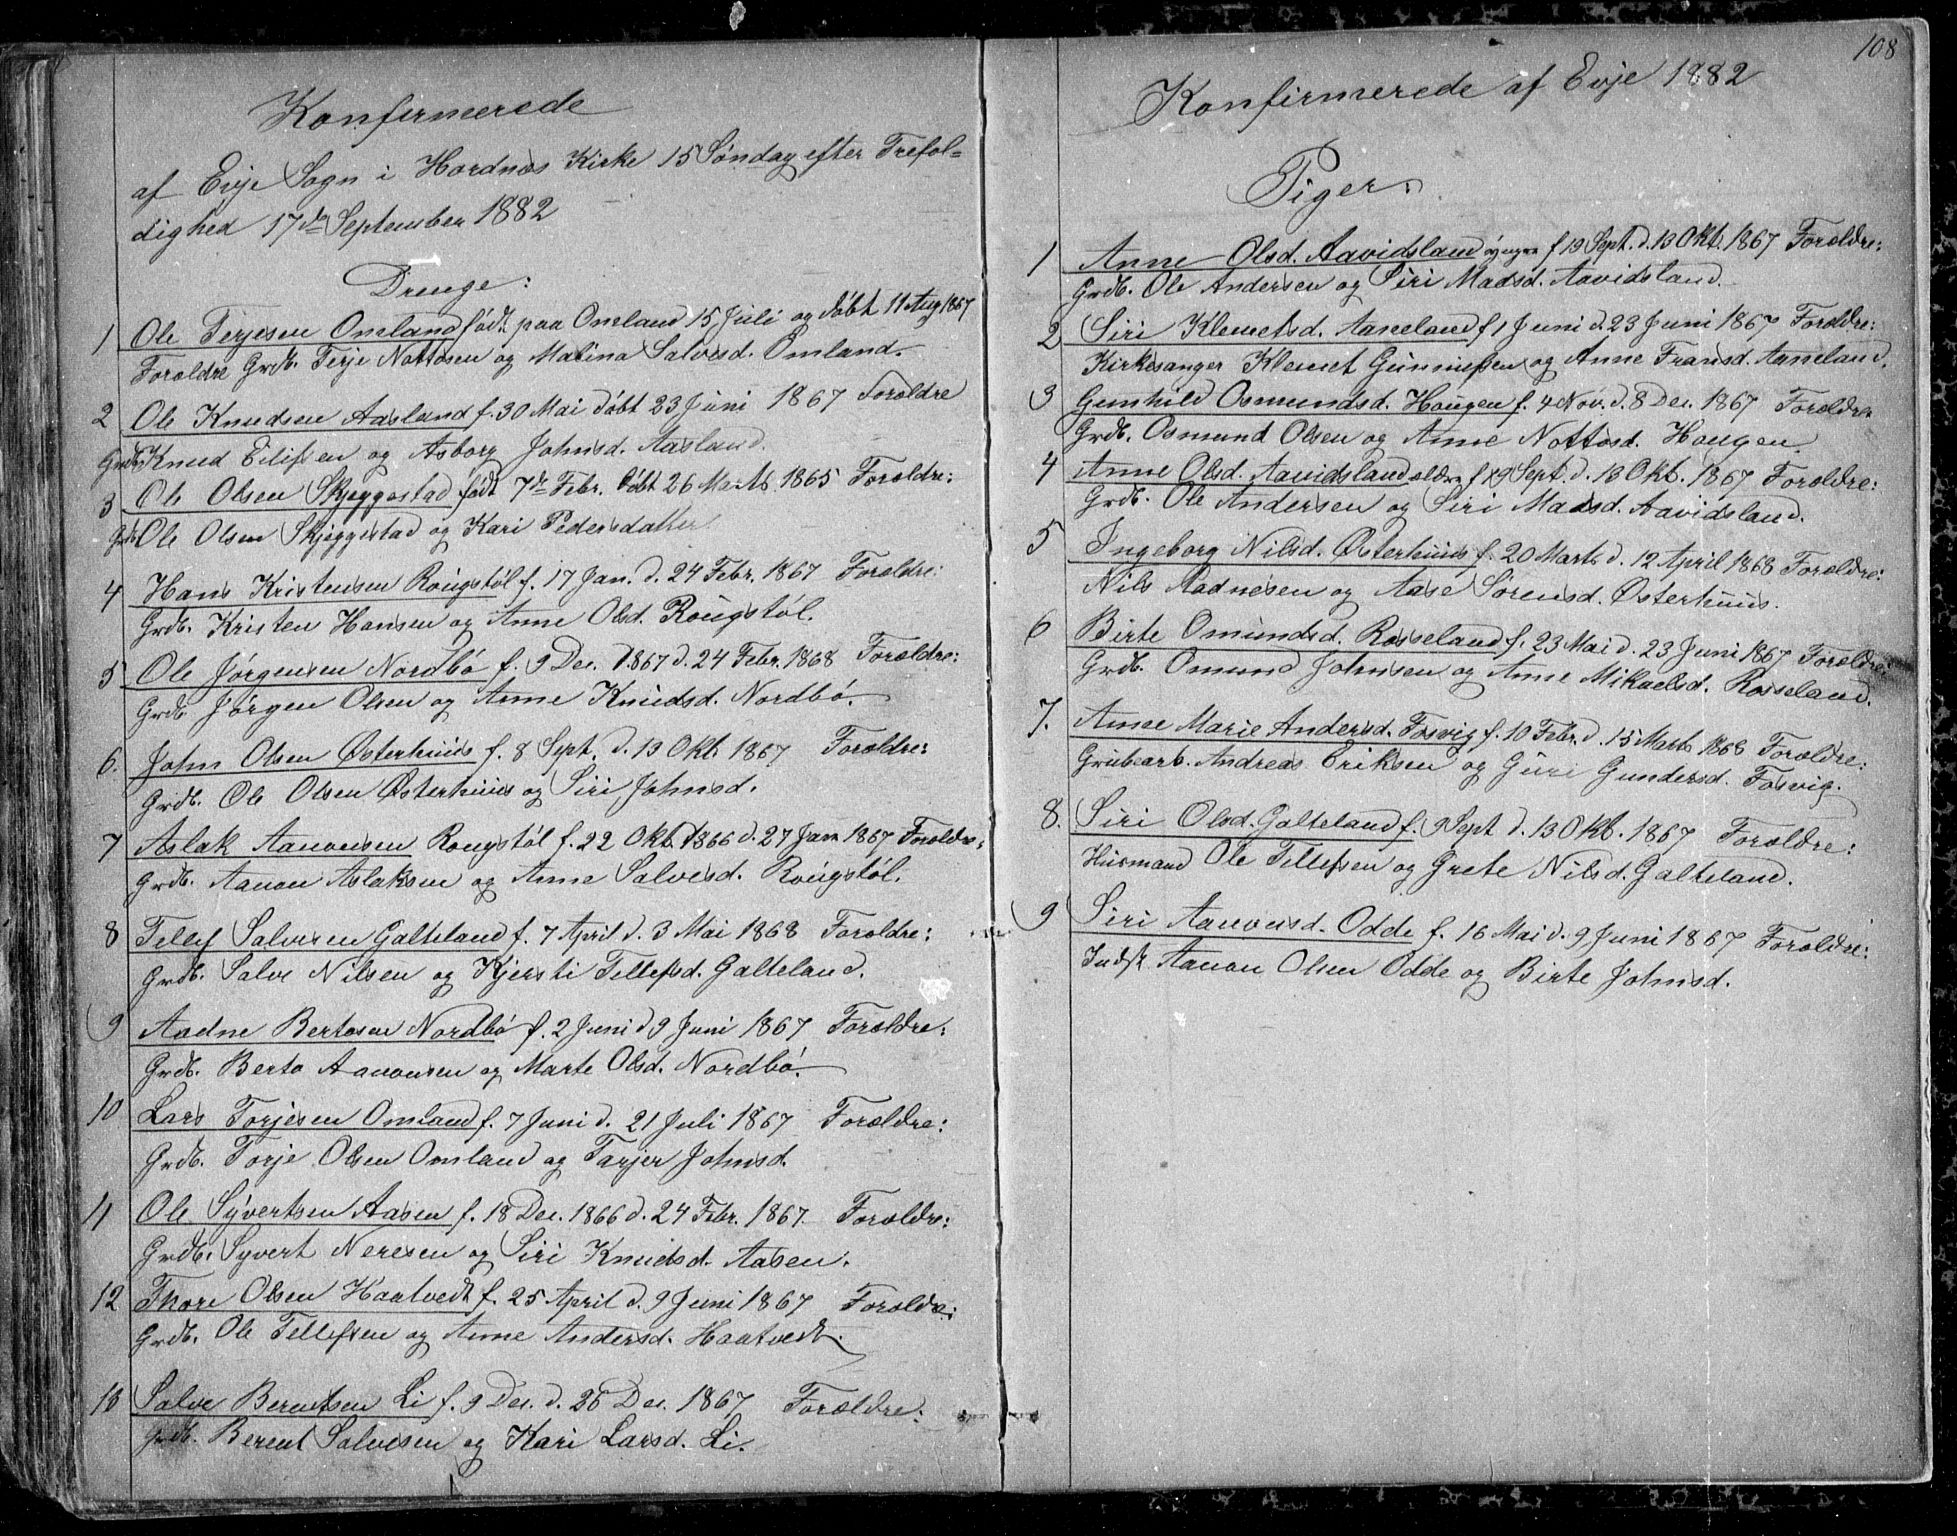 Konfirmerede
af Evje Sogn i Hordnes Kirke 15 Søndag efter Trefol=
dighed 17de September 1882
Drenge:
1 Ole Terjesen Omland født paa Omland 15 Juli og døbt 11 Aug 1867
Forældre Grdb. Terje Nottosen og Malina Salvesd. Omland.
2 Ole Knudsen Aasland f. 30 Mai døbt 23 Juni 1867 Forældre
Grdb. Knud Eilifsen og Asborg Johnsd. Aasland.
3 Ole Olsen Skjeggestad født 7de Febr. døbt 26 Marts 1865 Forældre:
Grdb. Ole Olsen Skjeggestad og Kari Pedersdatter
4 Hans Kristensen Rougstøl f. 17 Jan. d. 24 Febr. 1867 Forældre:
Grdb. Kristen Hansen og Anne Olsd. Rougstøl.
5 Ole Jørgensen Nordbø f. 9 Dec. 1867 d. 24 Febr. 1868 Forældre:
Grdb. Jørgen Olsen og Anne Knudsd. Nordbø.
6. John Olsen Østerhuus f. 8 Sept. d. 13 Okt. 1867 Forældre:
Grdb. Ole Olsen Østerhuus og Siri Johnsd.
7 Aslak Aanonsen Rougstøl f. 22 Okt. 1866 d. 27 Jan 1867 Forældre:
Grdb. Aanon Aslaksen og Anne Salvesd. Rougstøl.
8 Tellef Salvesen Galteland f. 7 April d. 3 Mai 1868 Forældre:
Grdb. Salve Nilsen og Kjersti Tellefsd. Galteland.
9 Aadne Bertosen Nordbø f. 2 Juni d 9 Juni 1867 Forældre:
Grdb. Berto Aanonsen og Marte Olsd. Nordbø.
10 Lars Torjesen Omland f. 7 Juni d. 21 Juli 1867 Forældre:
Grdb. Torje Olsen Omland og Tarjer Johnsd.
11 Ole Syvertsen Aasen f. 18 Dec. 1866 d. 24 Febr. 1867. Forældre:
Grdb. Syvert Neresen og Siri Knudsd. Aasen.
12 Thore Olsen Haatvedt f. 25 April d. 9 Juni 1867 Forældre:
Grdb. Ole Tellefsen og Anne Andersd. Haatvedt.
13 Salve Berentsen Li f. 9 Dec. d. 26 Dec. 1867 Forældre:
Grdb. Berent Salvesen og Kari Larsd. Li.
108
Konfirmerede af Evje 1882
Piger:
1 Anne Olsd. Aavidsland yngre f 19 Sept. d. 13 Okt. 1867 Forældre:
Grdb. Ole Andersen og Siri Madsd. Aavidsland.
2 Siri Klemetsd. Aaneland f 1 Juni d. 23 Juni 1867 Forældre:
Kirkesanger Klemet Gunnufsen og Anne Fransd. Aaneland.
3 Gunhild Osmundsd. Hougen f. 4 Nov. d. 8 Dec. 1867 Forældre
Grdb. Osmund Olsen og Anne Nottosd. Hougen
4 Anne Olsd. Aavidsland ældre f 19 Sept. d. 13 Okt. 1867 Forældre:
Grdb. Ole Andersen og Siri Madsd. Aavidsland.
5 Ingeborg Nilsd. Østerhuus f. 20 Marts d. 12 April 1868 Forældre:
Nils Aadnesen og Aase Sørensd. Østerhuus.
6 Birte Omundsd. Rosseland f. 23 Mai d. 23 Juni 1867 Forældre:
Grdb. Omund Johnsen og Anne Mikaelsd. Rosseland.
7. Anne Marie Andersd. Fosvig f. 10 Febr. d. 15 Marts 1868 Forældre:
Grubearb. Andreas Eriksen og Guri Gundersd. Fosvig.
8. Siri Olsd. Galteland f. 9 Sept d. 13 Okt. 1867 Forældre:
Husmand Ole Tellefsen og Grete Nilsd. Galteland.
9 Siri Aanonsd. Odde f. 16 Mai d. 9 Juni 1867 Forældre:
Indst Aanon Olsen Odde og Birte Johnsd.